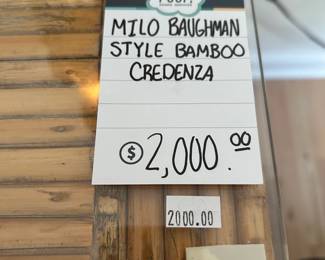 MILO BAUGHMAN
STYLE BAMBOO
CREDENZA
$ 2,000.00
2000.00